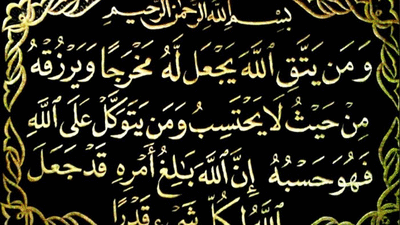 بِسْمِ اللَّهِ الرَّحْمَنِ الرَّحِيمِ
وَمَن يَتَّقِ ٱللَّهَ يَجْعَل لَّهُۥ مَخْرَجًا وَيَرْزُقْهُ
مِنْ حَيْثُ لَا يَحْتَسِبُ وَمَن يَتَوَكَّلْ عَلَى ٱللَّهِ
فَهُوَ حَسْبُهُۥٓ إِنَّ ٱللَّهَ بَٰلِغُ أَمْرِهِۦ قَدْ جَعَلَ
ٱللَّهُ لِكُلِّ شَىْءٍ قَدْرًا